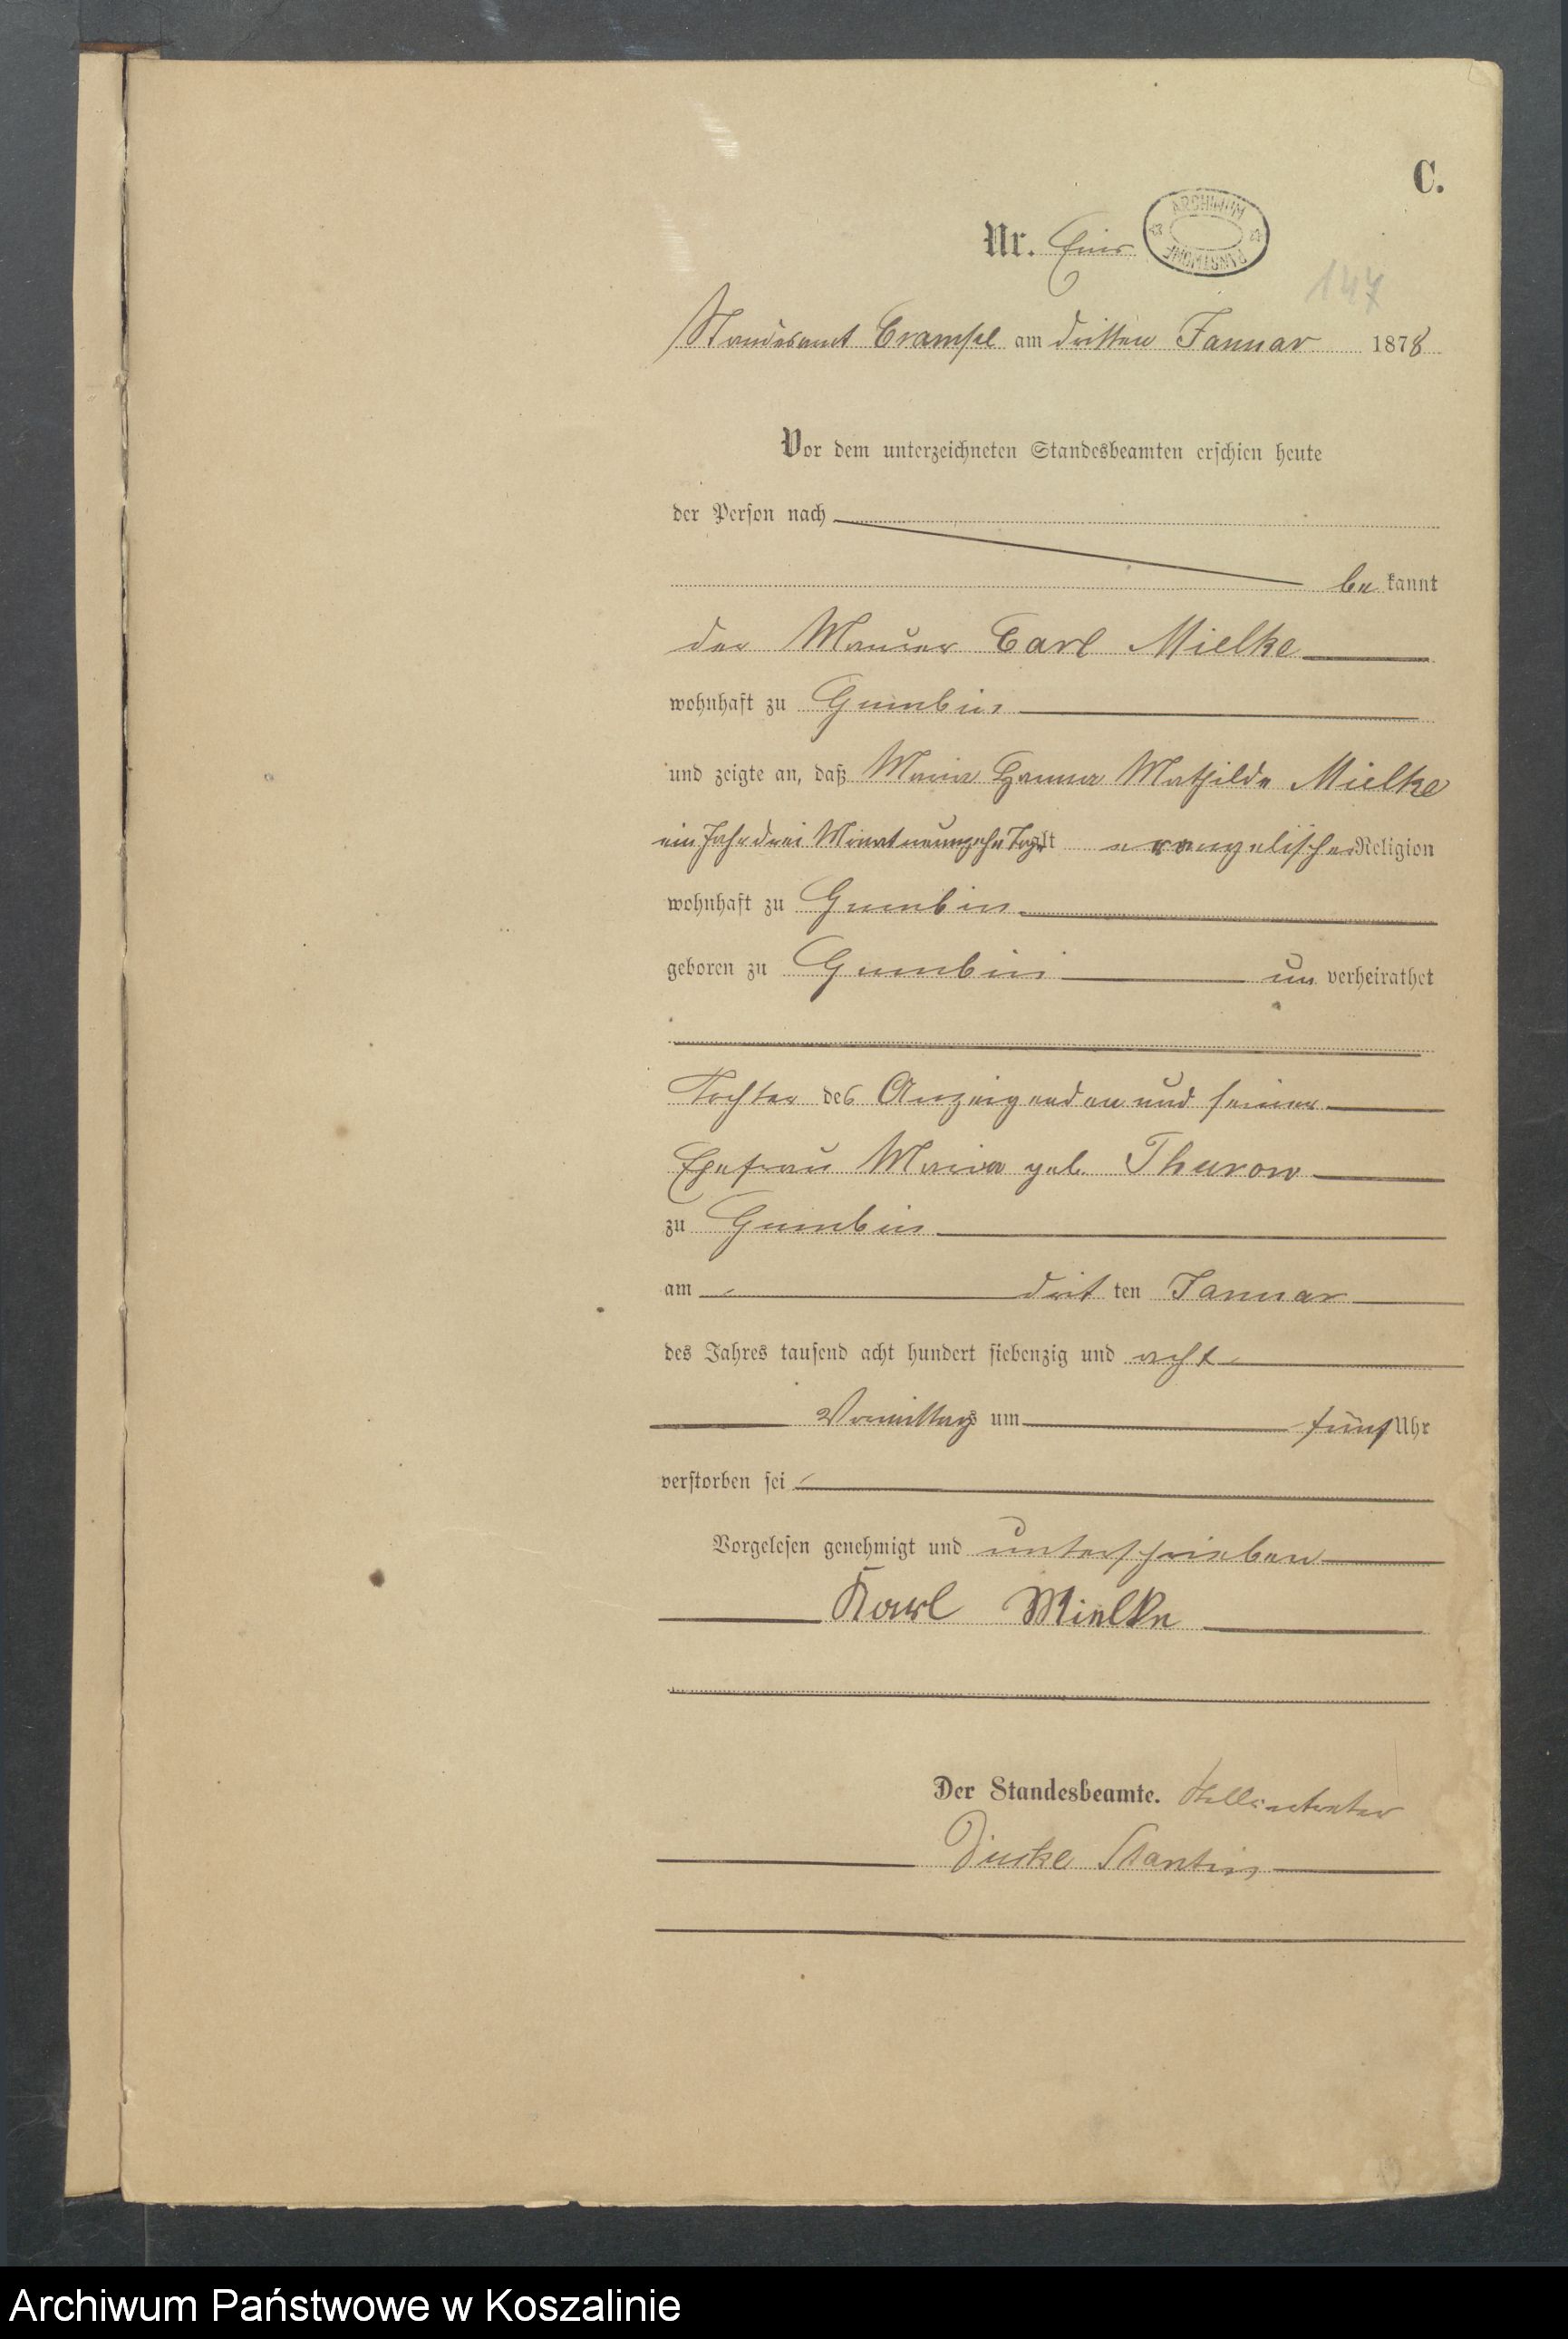 C.
Nr. Eins
ARCHIWUM PAŃSTWOWE
147
Standesamt Crampe am dritten Januar 1878
Vor dem unterzeichneten Standesbeamten erschien heute
der Person nach
be kannt
der Maurer Carl Mielke
wohnhaft zu Gumbin
und zeigte an, daß Maria Hanna Mathilde Mielke
ein Jahr drei Monat neunzehn Tage alt evangelischer Religion
wohnhaft zu Gumbin
geboren zu Gumbin un verheirathet
Tochter des Anzeigenden und seiner
Ehefrau Maria geb. Thurow
zu Gumbin
am drit ten Januar
des Jahres tausend acht hundert siebenzig und acht
Vormittags um fünf Uhr
verstorben sei
Vorgelesen genehmigt und unterschrieben
Karl Mielke
Der Standesbeamte. Stellvertreter
Archiwum Państwowe w Koszalinie